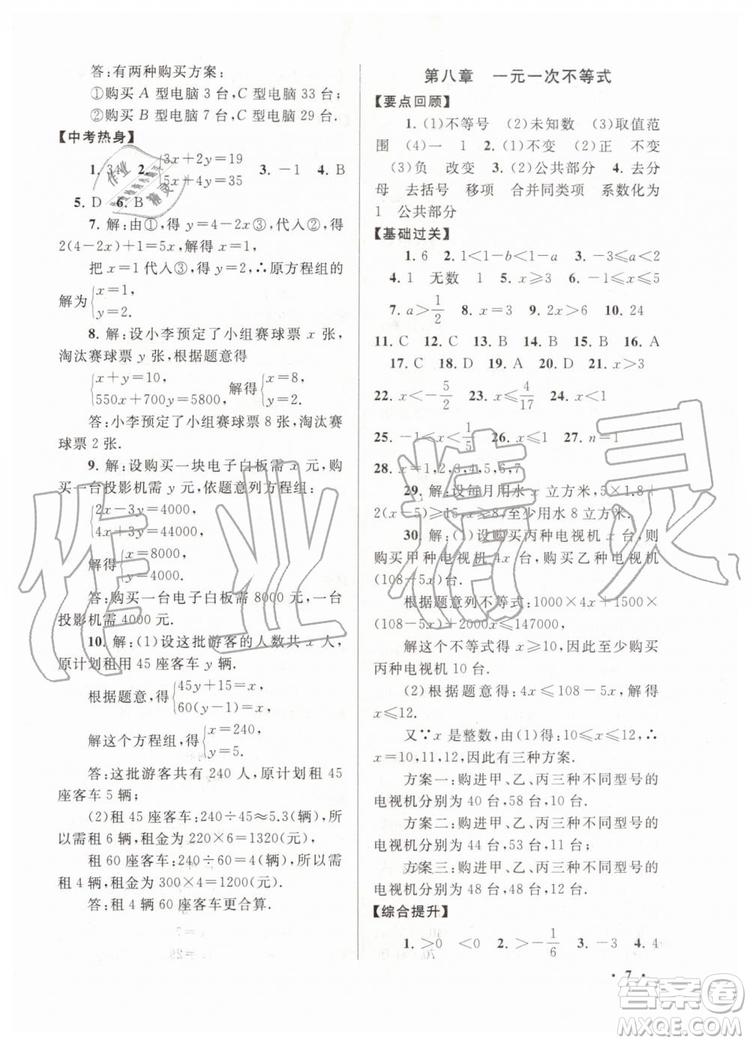 答:有两种购买方案:
①购买 A 型电脑 3 台,C 型电脑 33 台;
②购买 A 型电脑 7 台,C 型电脑 29 台.
【中考热身】
1. 3 2. {3x+2y=19
x+4y=35 3. -1 4. B
5. D 6. B
7. 解:由①,得 y=4-2x③,代入②,得
2(4-2x)+1=5x,解得 x=1,
把 x=1 代入③,得 y=2,∴原方程组的
解为{x=1,
y=2.
8. 解:设小李预定了小组赛球票 x 张,
淘汰赛球票 y 张.根据题意得
{x+y=10,
550x+700y=5800, 解得{x=8,
y=2.
答:小李预定了小组赛球票 8 张,淘汰赛
球票 2 张.
9. 解:设购买一块电子白板需 x 元,购
买一台投影机需 y 元,依题意列方程组:
{2x-3y=4000,
4x+3y=44000,
解得{x=8000,
y=4000.
答:购买一台电子白板需 8000 元,一台
投影机需 4000 元.
10. 解:(1)设这批游客的人数共 x 人,
原计划租用 45 座客车 y 辆.
根据题意,得{45y+15=x,
60(y-1)=x,
解这个方程组,得{x=240,
y=5.
答:这批游客共 240 人,原计划租 45
座客车 5 辆;
(2)租 45 座客车:240÷45≈5.3(辆),
所以需租 6 辆,租金为 220×6=1320(元),
租 60 座客车:240÷60=4(辆),所以
需租 4 辆,租金为 300×4=1200(元).
答:租 4 辆 60 座客车更合算.
第八章 一元一次不等式
【要点回顾】
1. (1)不等号 (2)未知数 (3)取值范
围 (4)一 1 不等 2. (1)不变 (2)正 不变
(3)负 改变 3. (2)公共部分 4. 去分
母 去括号 移项 合并同类项 系数化为
1 公共部分
【基础过关】
1. 6 2. 1<1-b<1-a 3. -1≤a<2
4. 1 无数 1 5. x≥3 6. -1≤x<3
7. a>1/2 8. x=3 9. x<2 10. 24
11. C 12. C 13. C 14. B 15. B 16. A
17. C 18. D 19. C 20. A 21. A
22. x<-5/2 23. x≤4/17 24. x>0
25. -1≤x<1/5 26. x≤1 27. n=1
28. x=1,2,3,4,5,7
29. 解:设每月用水 x 立方米,5×1.8+
2(x-5)≥15,x≥8,至少用水 8 立方米.
30. 解:(1)设购买丙种电视机 x 台,则
购买甲种电视机 4x 台,购买乙种电视机
(108-5x)台.
根据题意列不等式:1000×4x+1500×
(108-5x)+2000x≤147000,
解这个不等式得 x≥10,因此至少购买
丙种电视机 10 台.
(2)根据题意得:4x≤108-5x,解得
x≤12.
又∵x 是整数,由(1)得:10≤x≤12,
∴x=10,11,12,因此有三种方案.
方案一:购进甲、乙、丙三种不同型号的
电视机分别为 40 台,58 台,10 台;
方案二:购进甲、乙、丙三种不同型号的
电视机分别为 44 台,53 台,11 台;
方案三:购进甲、乙、丙三种不同型号的
电视机分别为 48 台,48 台,12 台.
【综合提升】
1. >0 <0 2. >-1/6 3. ≤2 4. 4
· 7 ·
作业精灵
答案圈
MXQE.COM